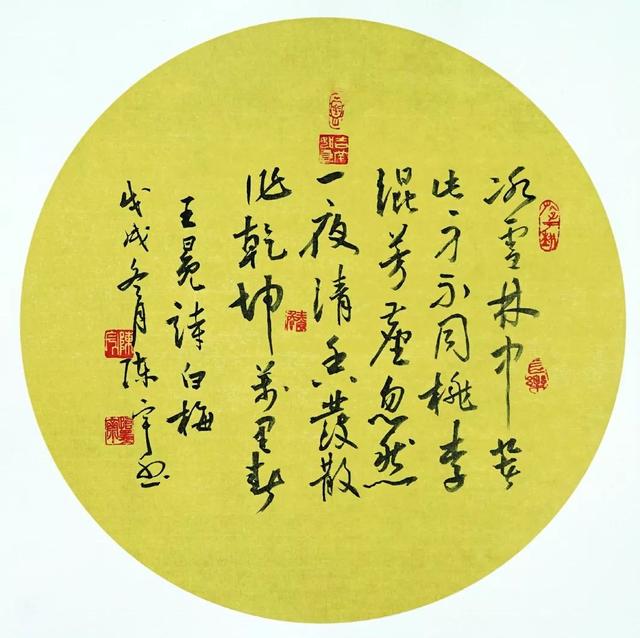 冰雪林中著
此身不同桃李
混芳塵忽然
一夜清香發散
作乾坤萬里春
王冕詩白梅
戊戌冬月陳宇書